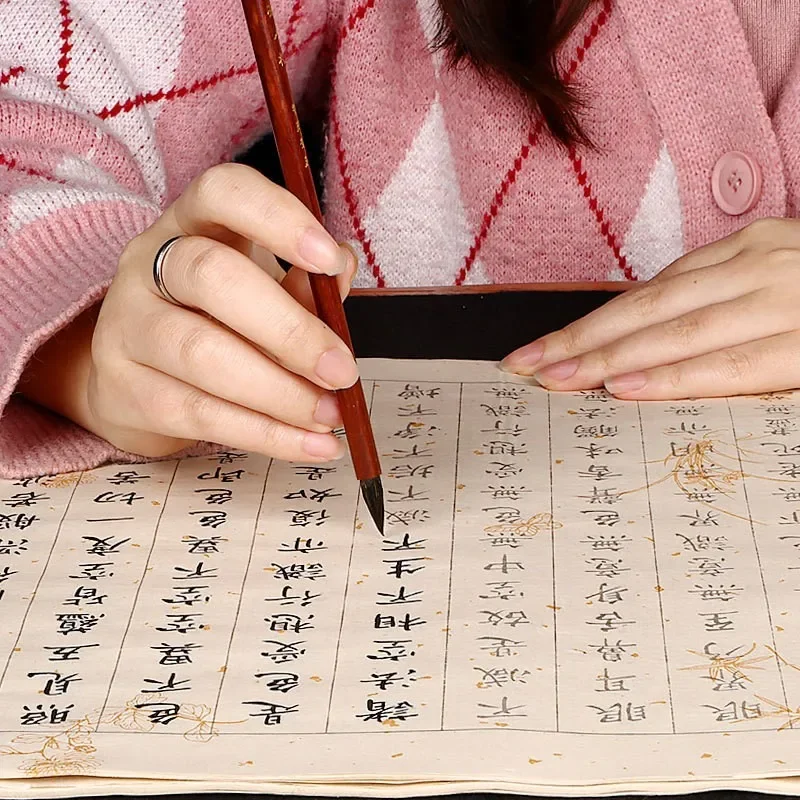 行深般若
照見五蘊皆空度一切苦
色不異空空不異色色即
是色受想行識亦復如是
諸法空相不生不滅不垢不淨不增
不減是故空中無色無受想行識無
眼耳鼻舌身意無色聲香味觸法
眼界乃至無意識界無無明亦無